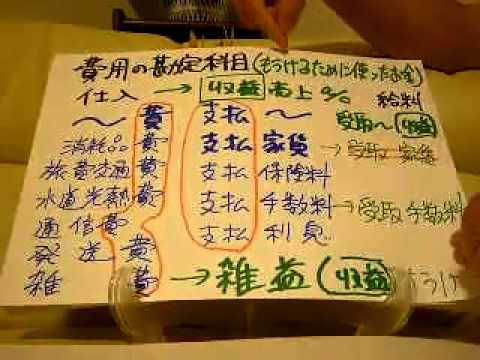 費用の勘定科目(もうけるために使ったお金)
仕入 → 収益 売上 % 給料
〜費 支払〜 受取〜 収益
消耗品費 支払家賃 → 受取家賃
旅費交通費 支払保険料
水道光熱費 支払手数料 → 受取手数料
通信費 支払利息
発送費
雑費 → 雑益(収益)もうけ